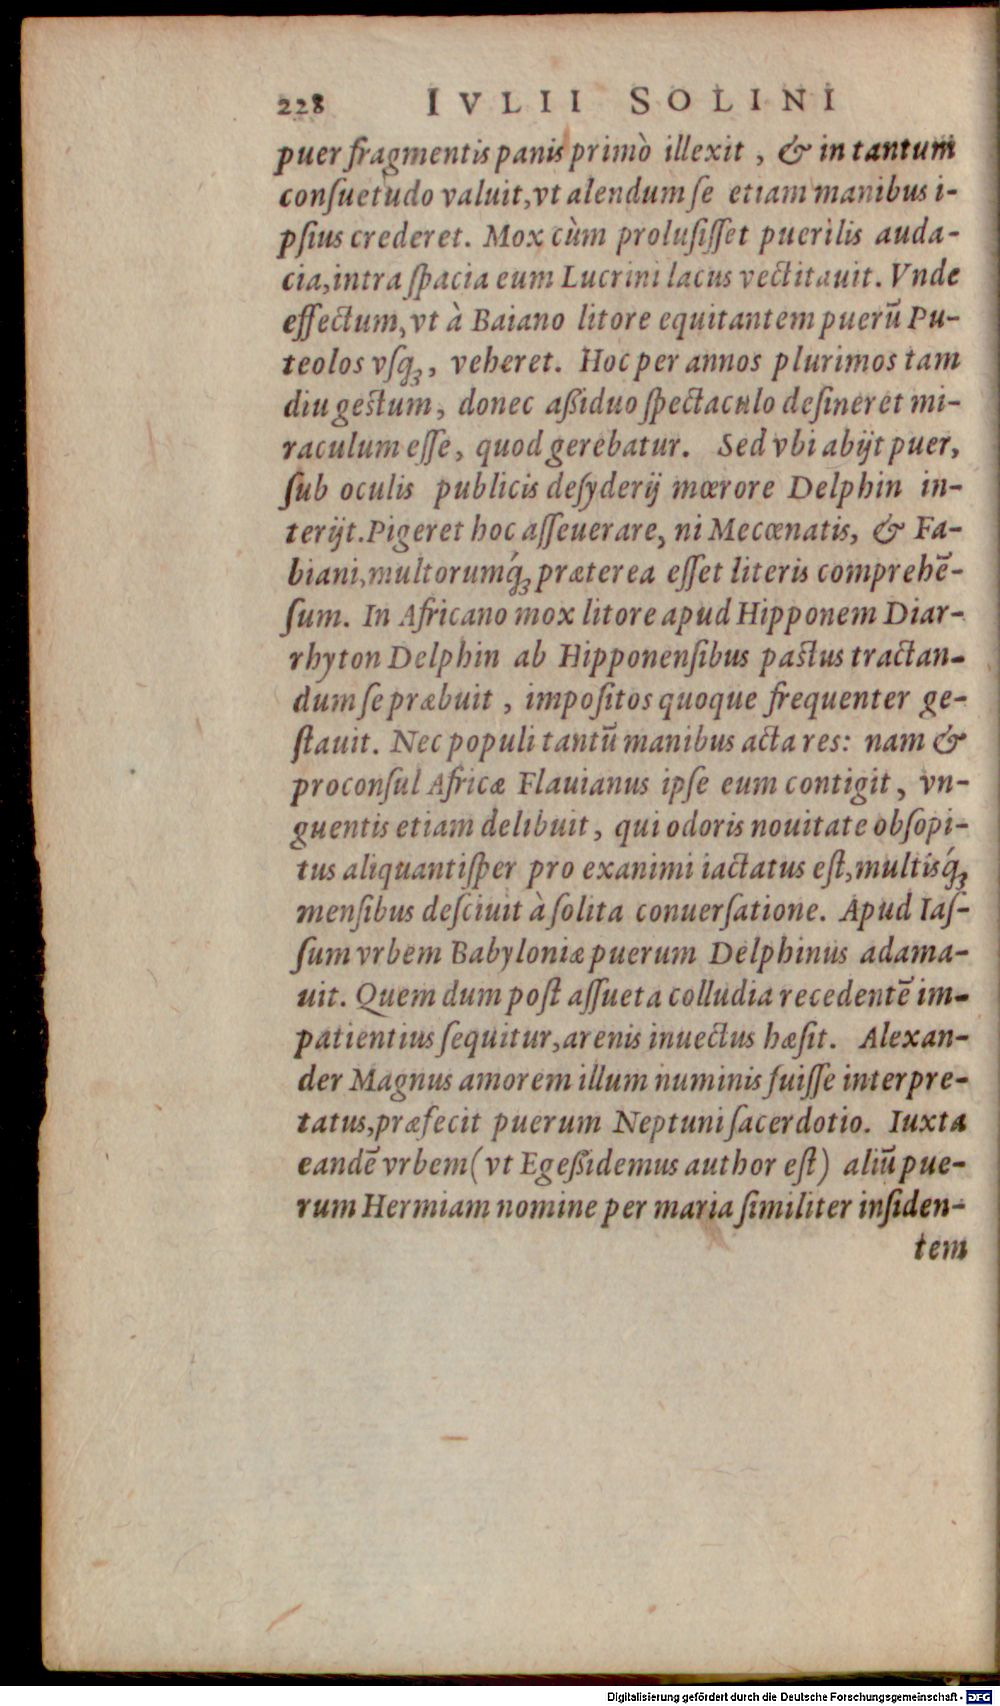 228 IVLII SOLINI
puer fragmentis panis primò illexit, & in tantum
conſuetudo valuit, vt alendum ſe etiam manibus i-
pſius crederet. Mox cùm proluſiſſet puerilis auda-
cia, intra ſpacia eum Lucrini lacus vectitauit. Vnde
effectum, vt à Baiano litore equitantem puerū Pu-
teolos vſq́ꝫ, veheret. Hoc per annos plurimos tam
diu geſtum, donec aßiduo ſpectaculo deſineret mi-
raculum eſſe, quod gerebatur. Sed vbi abijt puer,
ſub oculis publicis deſyderij mœrore Delphin in-
terijt. Pigeret hoc aſſeuerare, ni Mecœnatis, & Fa-
biani, multorumq́ꝫ, præterea eſſet literis comprehē-
ſum. In Africano mox litore apud Hipponem Diar-
rhyton Delphin ab Hipponenſibus paſtus tractan-
dum ſe præbuit, impoſitos quoque frequenter ge-
ſtauit. Nec populi tantū manibus acta res: nam &
proconſul Africæ Flauianus ipſe eum contigit, vn-
guentis etiam delibuit, qui odoris nouitate obſopi-
tus aliquantiſper pro exanimi iactatus eſt, multisq́ꝫ
menſibus deſciuit à ſolita conuerſatione. Apud Iaſ-
ſum vrbem Babyloniæ puerum Delphinus adama-
uit. Quem dum poſt aſſueta colludia recedentē im-
patientius ſequitur, arenis inuectus hæſit. Alexan-
der Magnus amorem illum numinis fuiſſe interpre-
tatus, præfecit puerum Neptuni ſacerdotio. Iuxta
eandē vrbem (vt Egeßidemus author eſt) aliū pue-
rum Hermiam nomine per maria ſimiliter inſiden-
tem
Digitalisierung gefördert durch die Deutsche Forschungsgemeinschaft - DFG